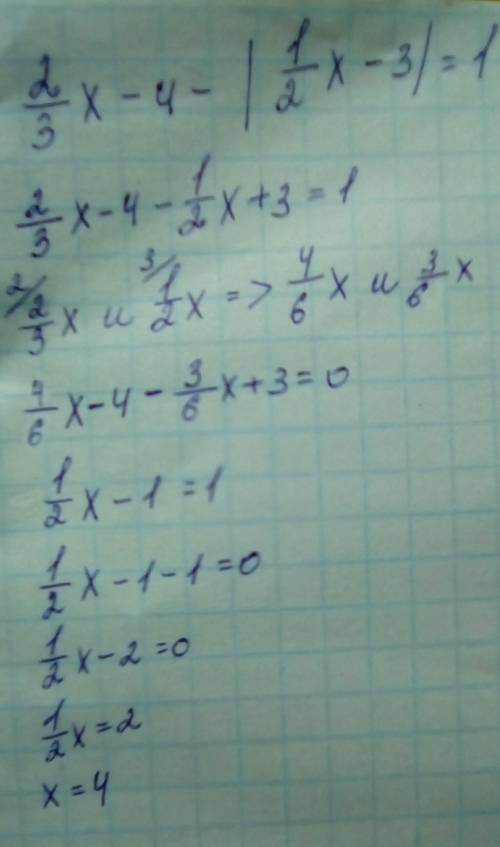 2/3 x - 4 - | 1/2 x - 3 | = 1
2/3 x - 4 - 1/2 x + 3 = 1
2/ 2/3 x и 3/ 1/2 x => 4/6 x и 3/6 x
4/6 x - 4 - 3/6 x + 3 = 0
1/2 x - 1 = 1
1/2 x - 1 - 1 = 0
1/2 x - 2 = 0
1/2 x = 2
x = 4